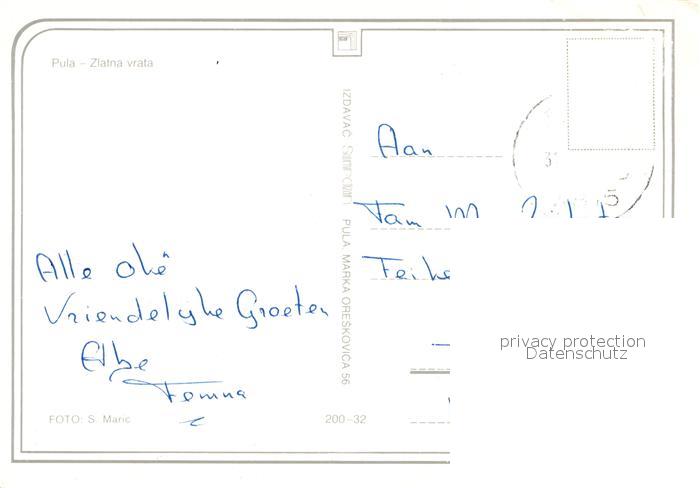 Pula – Zlatna vrata
IZDAVAČ
PULA MARKA OREŠKOVIĆA 56
Aan
Fam
Alle oké
Vriendelyke Groeten
Femna
FOTO: S. Maric
200–32
privacy protection
Datenschutz